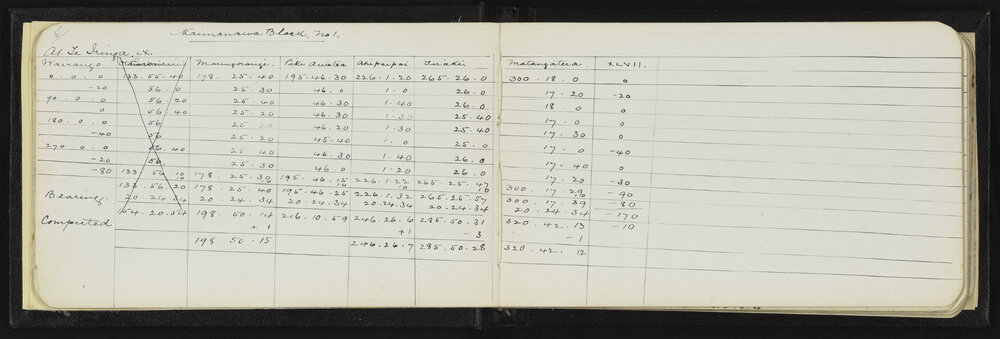 6
Kaimanawa Block, No 1.
At Te Iringa, IX.
Wairango Maungaorangi. Puki Auratea Ahipaepae Matangatera XLVII.
0 . 0 . 0 133 . 55 . 40 178 . 25 . 40 195 . 46 . 30 226 . 1 . 20 265 . 26 . 0 300 . 18 . 0 0
-20 56 . 0 25 . 30 46 . 0 1 . 0 26 . 0 17 . 20 -20
90 . 0 . 0 56 . 20 25 . 40 46 . 30 1 . 40 26 . 0 18 . 0 0
0 56 . 40 25 . 20 46 . 30 1 . 30 25 . 40 17 . 0 0
180 . 0 . 0 56 25 . 20 46 . 20 1 . 30 25 . 40 17 . 30 0
-40 56 25 . 20 45 . 40 1 . 0 25 . 0 17 . 0 -40
270 . 0 . 0 56 . 40 25 . 40 46 . 30 1 . 40 26 . 0 17 . 40 0
-20 56 25 . 30 46 . 0 1 . 20 26 . 0 17 . 20 -30
-80 133 56 . 10 178 . 25 . 30 195 . 46 . 15 226 . 1 . 22 265 . 25 . 47 300 . 17 . 29 -90
10 10 10 10 10 10
133 . 56 . 20 178 . 25 . 40 195 . 46 . 25 226 . 1 . 32 265 . 25 . 57 300 . 17 . 39 -80
Bearing. 20 . 24 . 34 20 . 24 . 34 20 . 24 . 34 20 . 24 . 34 20 . 24 . 34 20 . 24 . 34 -170
154 . 20 . 54 198 . 50 . 14 216 . 10 . 59 246 . 26 . 6 285 . 50 . 31 320 . 42 . 13 -10
Computed +1 +1 -3 -1
198 . 50 . 15 246 . 26 . 7 285 . 50 . 28 320 . 42 . 12